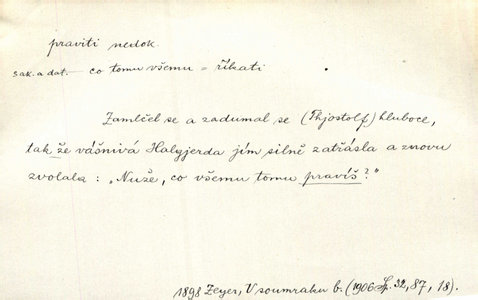 praviti nedok.
s ak. a dat. — co tomu všemu = říkati
Zamlčel se a zadumal se (Thjostolf) hluboce,
tak že vášnivá Halgjerda jím silně zatřásla a znovu
zvolala : „Nuže, co všemu tomu pravíš?"
1898 Zeyer, V soumraku b. (1906 Sp. 32, 87, 18).